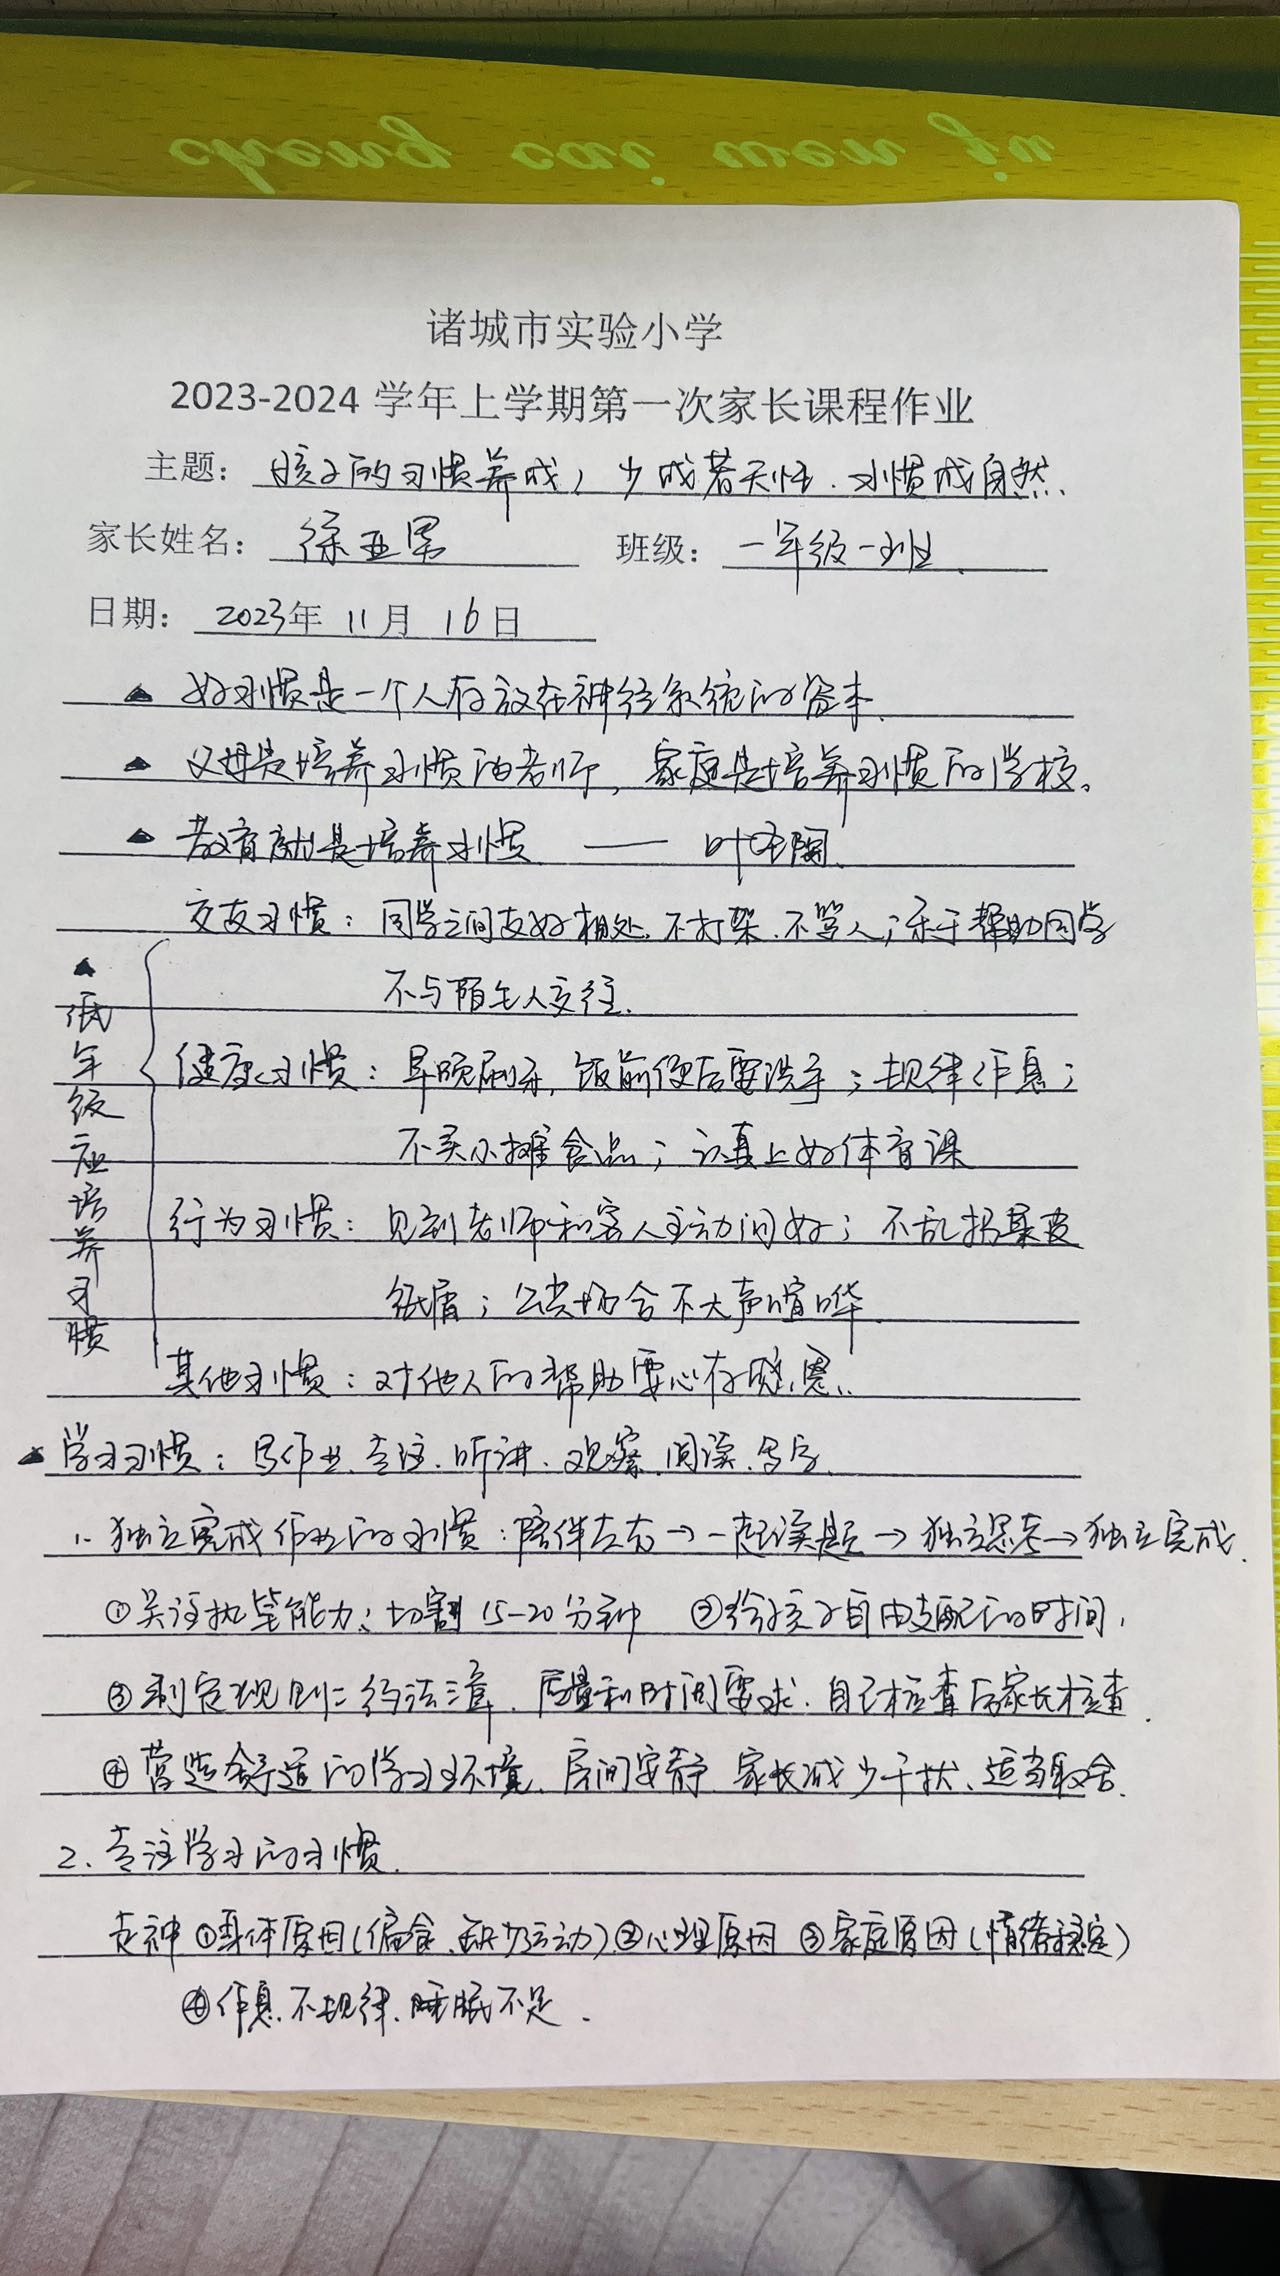 诸城市实验小学
2023-2024 学年上学期第一次家长课程作业
主题: 孩子的习惯养成,少成若天性、习惯成自然.
家长姓名: 徐亚男 班级: 一年级一班.
日期: 2023年 11月 16日
▲ 好习惯是一个人存放在神经系统的资本.
▲ 父母是培养习惯的老师,家庭是培养习惯的学校。
▲ 教育就是培养习惯 —— 叶圣陶.
▲低年级应培养习惯
交友习惯: 同学之间友好相处.不打架.不骂人;乐于帮助同学
不与陌生人交往.
健康习惯: 早晚刷牙,饭前便后要洗手;规律作息;
不买小摊食品;认真上好体育课
行为习惯: 见到老师和客人主动问好;不乱扔果皮
纸屑;公共场合不大声喧哗.
其他习惯: 对他人的帮助要心存感恩.
▲ 学习习惯: 写作业、专注、听讲、观察、阅读、写字.
1. 独立完成作业的习惯: 陪伴左右→一起读题→独立思考→独立完成.
①关注执笔能力: 切割15-20分钟 ②给孩子自由支配的时间,
③制定规则: 约法三章.质量和时间要求.自己检查后家长检查.
④营造舒适的学习环境.房间安静.家长减少干扰、适当取舍.
2. 专注学习的习惯.
走神 ①身体原因(偏食、缺少运动)②心理原因 ③家庭原因(情绪稳定)
④作息不规律.睡眠不足.